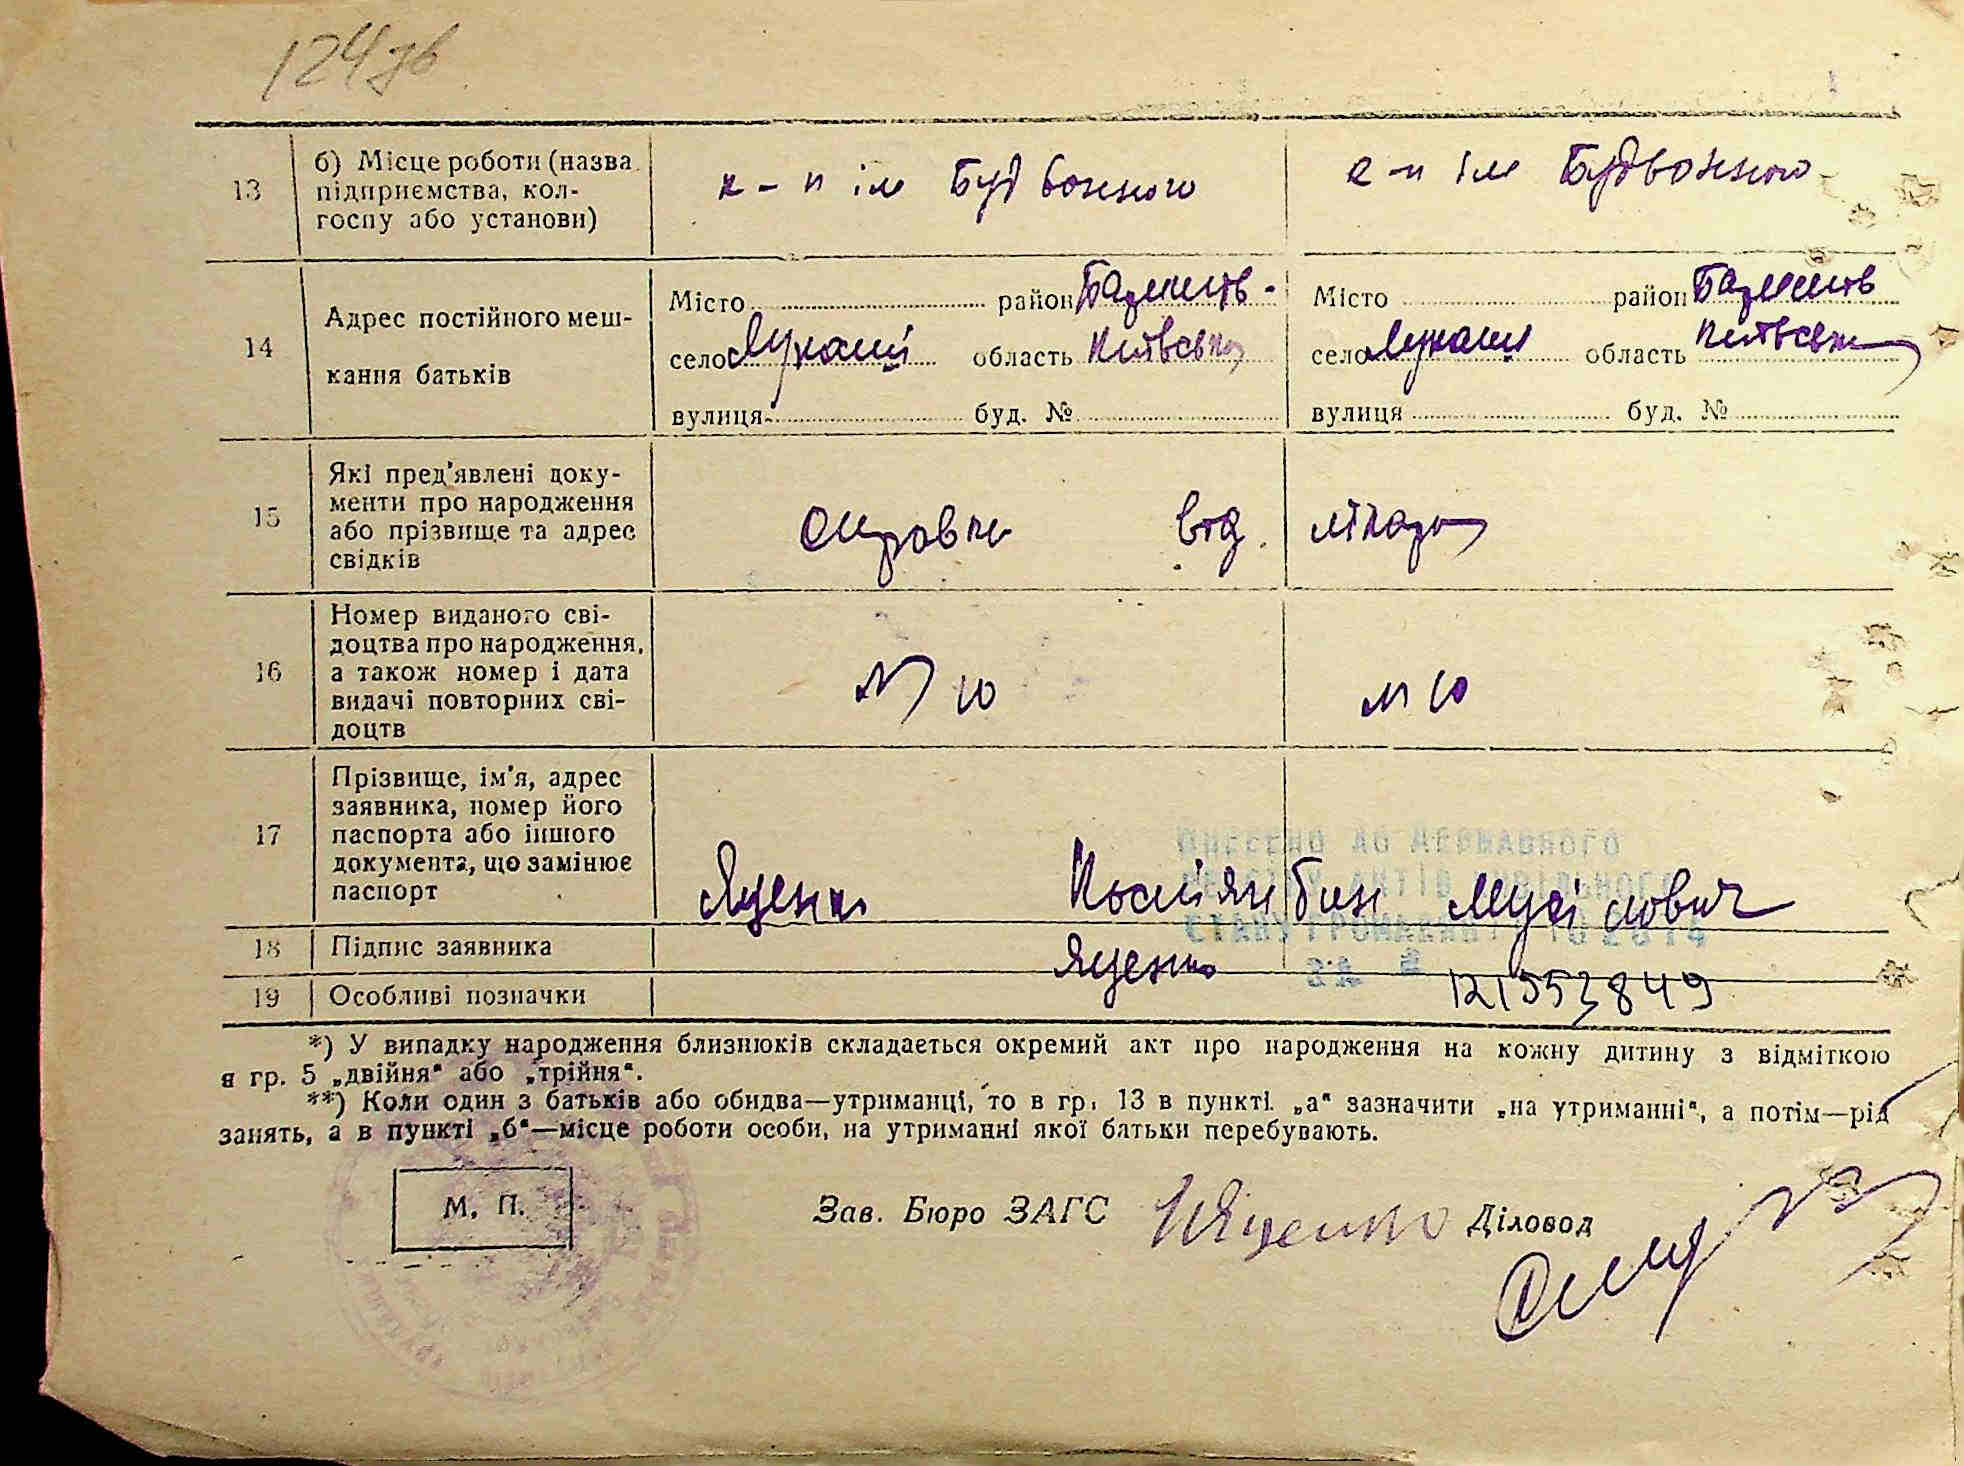 124 зв
13 б) Місце роботи (назва підприємства, кол-
госпу або установи)
к-п ім Будьонного к-п ім Будьонного
14 Адрес постійного меш-
кання батьків
Місто район Баришів- Місто район Баришів
село Лукаші область Київська село Лукаші область Київська
вулиця буд. № вулиця буд. №
15 Які пред'явлені доку-
менти про народження
або прізвище та адрес
свідків
Справка від лікаря
16 Номер виданого сві-
доцтва про народження,
а також номер і дата
видачі повторних сві-
доцтв
№ 10 № 10
17 Прізвище, ім'я, адрес
заявника, номер його
паспорта або іншого
документа, що замінює
паспорт
Яценко Мусійович
ВНЕСЕНО ДО ДЕРЖАВНОГО
РЕЄСТРУ АКТІВ ЦИВІЛЬНОГО
СТАНУ ГРОМАДЯН
ЗА №
18 Підпис заявника Яценко
19 Особливі позначки 121553849
*) У випадку народження близнюків складається окремий акт про народження на кожну дитину з відміткою
в гр. 5 „двійня“ або „трійня“.
**) Коли один з батьків або обидва—утриманці, то в гр. 13 в пункті „а“ зазначити „на утриманні“, а потім—рід
занять, а в пункті „б“—місце роботи особи, на утриманні якої батьки перебувають.
М. П.
Зав. Бюро ЗАГС Яценко Діловод